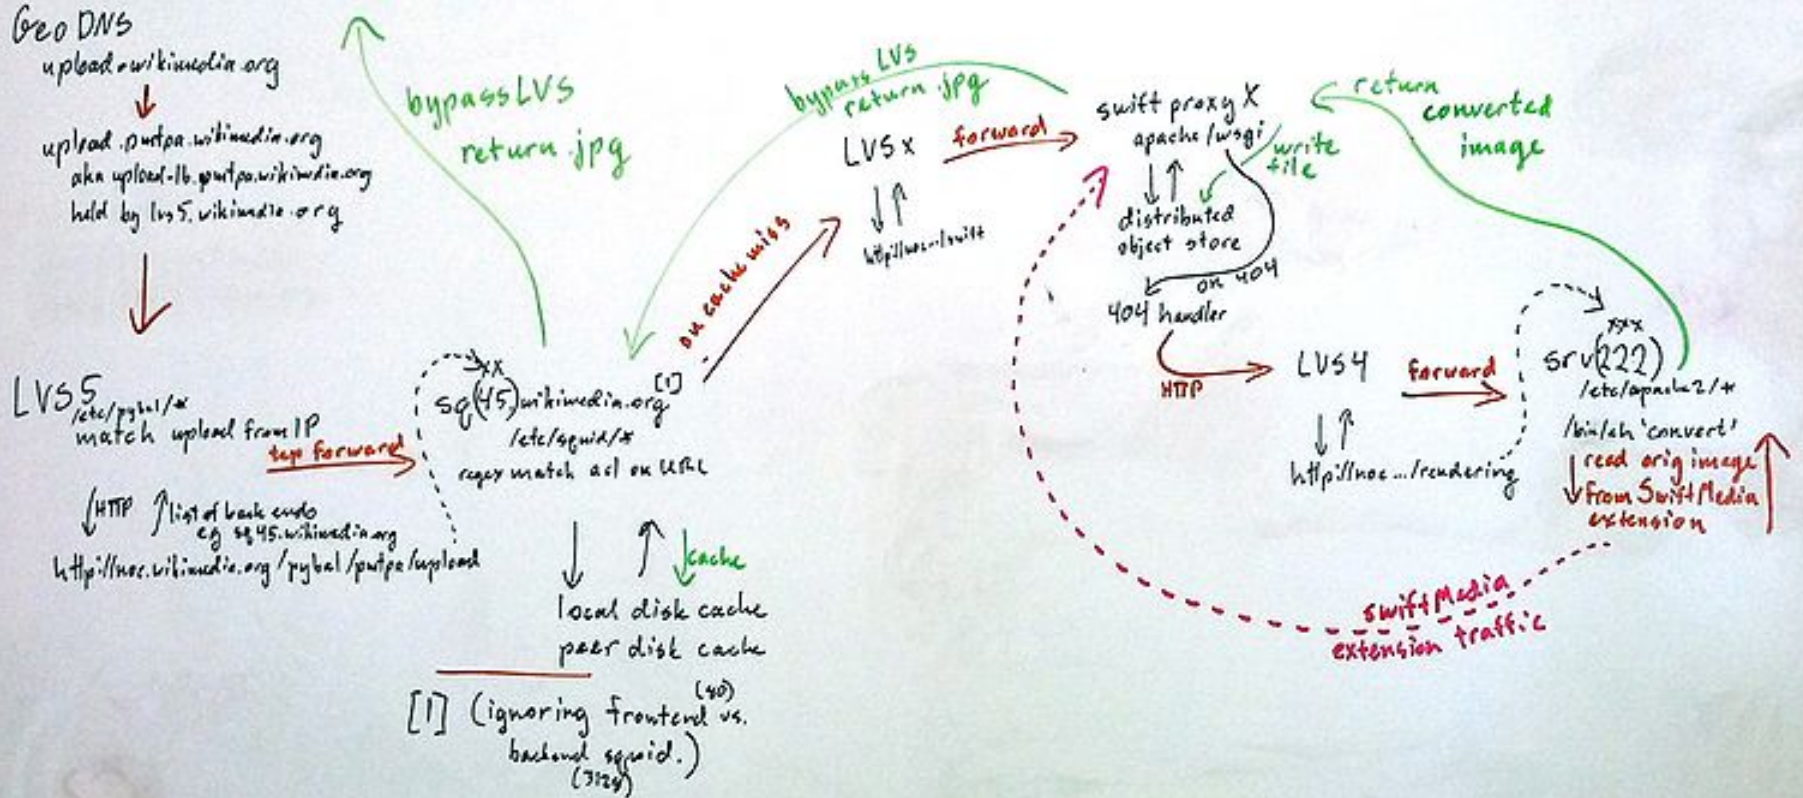 Geo DNS
upload.wikimedia.org
upload.pmtpa.wikimedia.org
aka upload-lb.pmtpa.wikimedia.org
held by lvs5.wikimedia.org
LVS5
/etc/pybal/*
match upload from IP
tcp forward
HTTP
list of back ends
eg sq45.wikimedia.org
http://noc.wikimedia.org/pybal/pmtpa/upload
bypass LVS
return .jpg
xx
sq(45)wikimedia.org [1]
/etc/squid/*
regex match acl on URL
cache
local disk cache
peer disk cache
[1] (ignoring frontend (80) vs.
backend squid.)
(3128)
on cache miss
bypass LVS
return .jpg
LVSx
forward
http://noc.../swift
swift proxy X
apache/wsgi
write
file
distributed
object store
on 404
404 handler
HTTP
LVS4
forward
http://noc.../rendering
return
converted
image
xxx
srv(222)
/etc/apache2/*
/bin/sh 'convert'
read orig image
from SwiftMedia
extension
swiftMedia
extension traffic